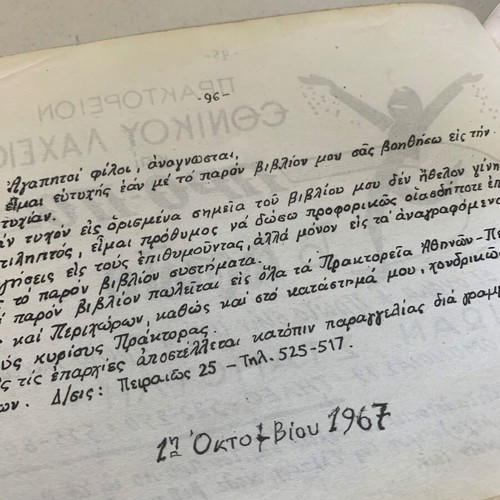 -96-
Ἀγαπητοί φίλοι, ἀναγνωσται,
Εἶμαι εὐτυχής ἐάν μέ τό παρόν βιβλίον μου σᾶς βοηθήσω εἰς τήν
τυχίαν.
άν τυχόν εἰς ὁρισμένα σημεῖα τοῦ βιβλίου μου δέν ἤθελον γίνη
τιληπτός, εἶμαι πρόθυμος νά δώσω προφορικῶς οἱασδήποτε ἐπ
γήσεις εἰς τούς ἐπιθυμοῦντας, ἀλλά μόνον εἰς τα ἀναγραφόμενα
ς τό παρόν βιβλίον συστήματα.
ό παρόν βιβλίον πωλεῖται εἰς ὅλα τά Πρακτορεῖα Ἀθηνῶν-Πε
ς καί Περιχώρων, καθώς καί στό κατάστημά μου, χονδρικῶ
ούς κυρίους Πράκτορας.
ς τίς ἐπαρχίες ἀποστέλλεται κατόπιν παραγγελίας διά γραμμ
των. Δ/σις: Πειραιῶς 25 - Τηλ. 525-517.
1η Ὀκτωβίου 1967
ΠΡΑΚΤΟΡΕΙΟΝ
ΕΘΝΙΚΟΥ ΛΑΧΕΙΟ